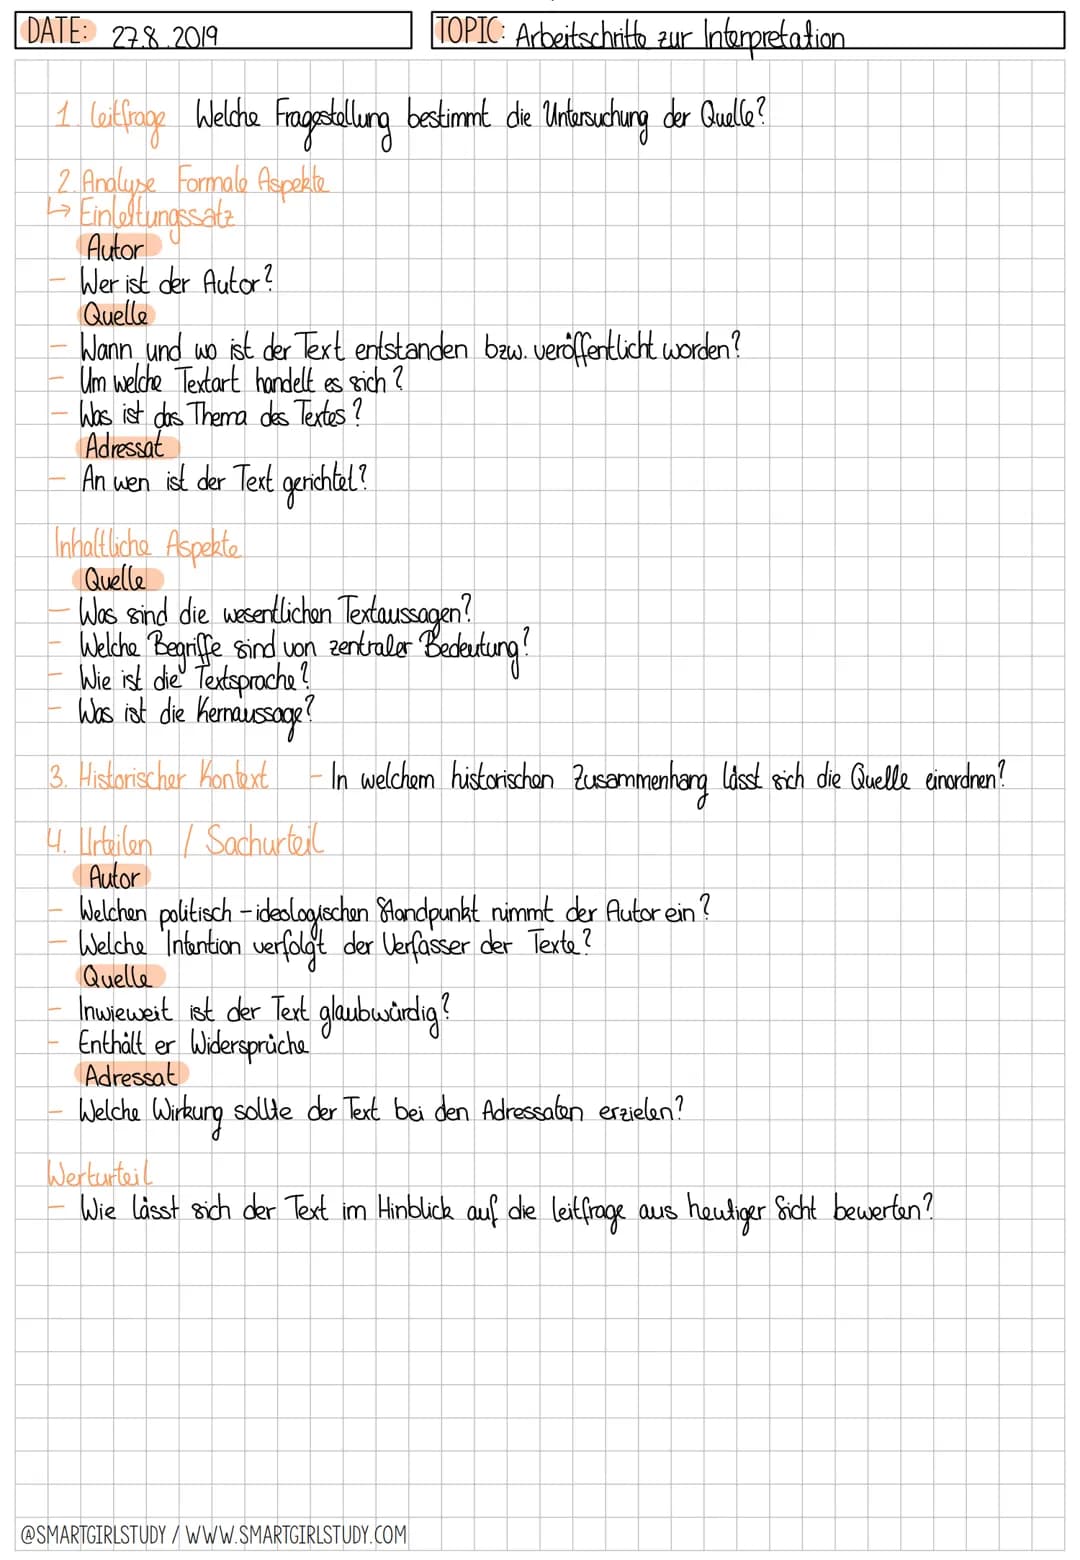 DATE: 27.8.2019
TOPIC: Arbeitschritte zur Interpretation
1. Leitfrage Welche Fragestellung bestimmt die Untersuchung der Quelle?
2. Analyse Formale Aspekte
↳ Einleitungssatz
Autor
- Wer ist der Autor?
Quelle
- Wann und wo ist der Text entstanden bzw. veröffentlicht worden?
- Um welche Textart handelt es sich?
- Was ist das Thema des Textes?
Adressat
- An wen ist der Text gerichtet?
Inhaltliche Aspekte
Quelle
- Was sind die wesentlichen Textaussagen?
- Welche Begriffe sind von zentraler Bedeutung?
- Wie ist die Textsprache?
- Was ist die Kernaussage?
3. Historischer Kontext - In welchem historischen Zusammenhang lässt sich die Quelle einordnen?
4. Urteilen / Sachurteil
Autor
- Welchen politisch-ideologischen Standpunkt nimmt der Autor ein?
- Welche Intention verfolgt der Verfasser der Texte?
Quelle
- Inwieweit ist der Text glaubwürdig?
- Enthält er Widersprüche
Adressat
- Welche Wirkung sollte der Text bei den Adressaten erzielen?
Werturteil
- Wie lässt sich der Text im Hinblick auf die Leitfrage aus heutiger Sicht bewerten?
@SMARTGIRLSTUDY / WWW.SMARTGIRLSTUDY.COM